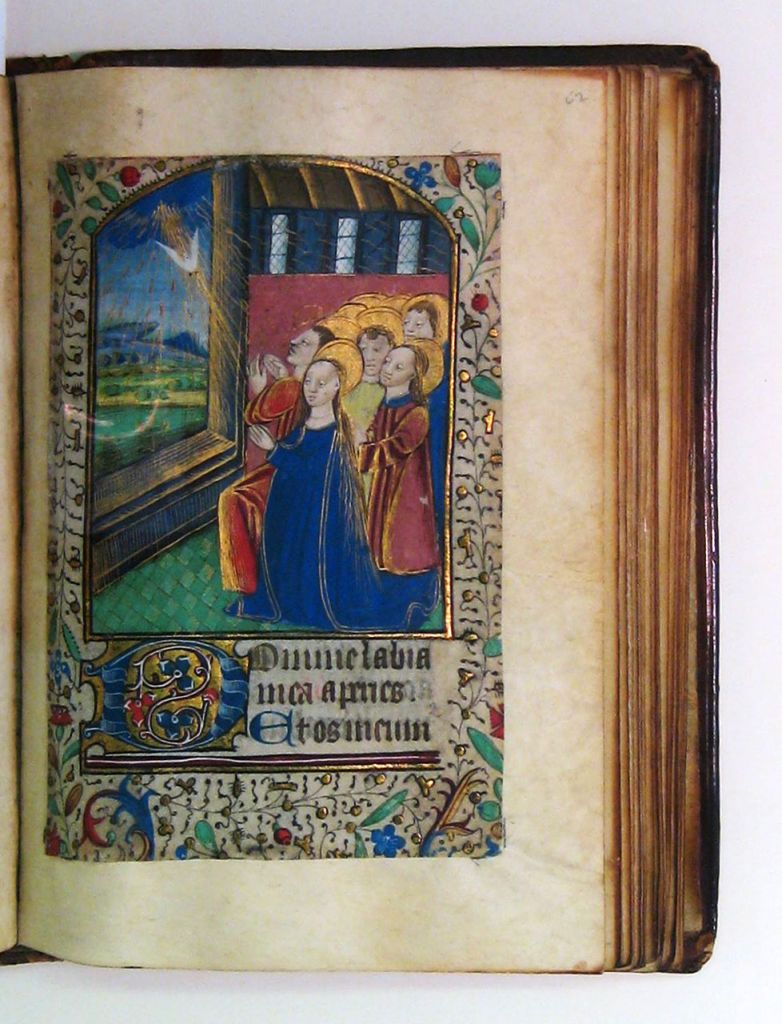 62
Domine labia
mea aperies.
Et os meum